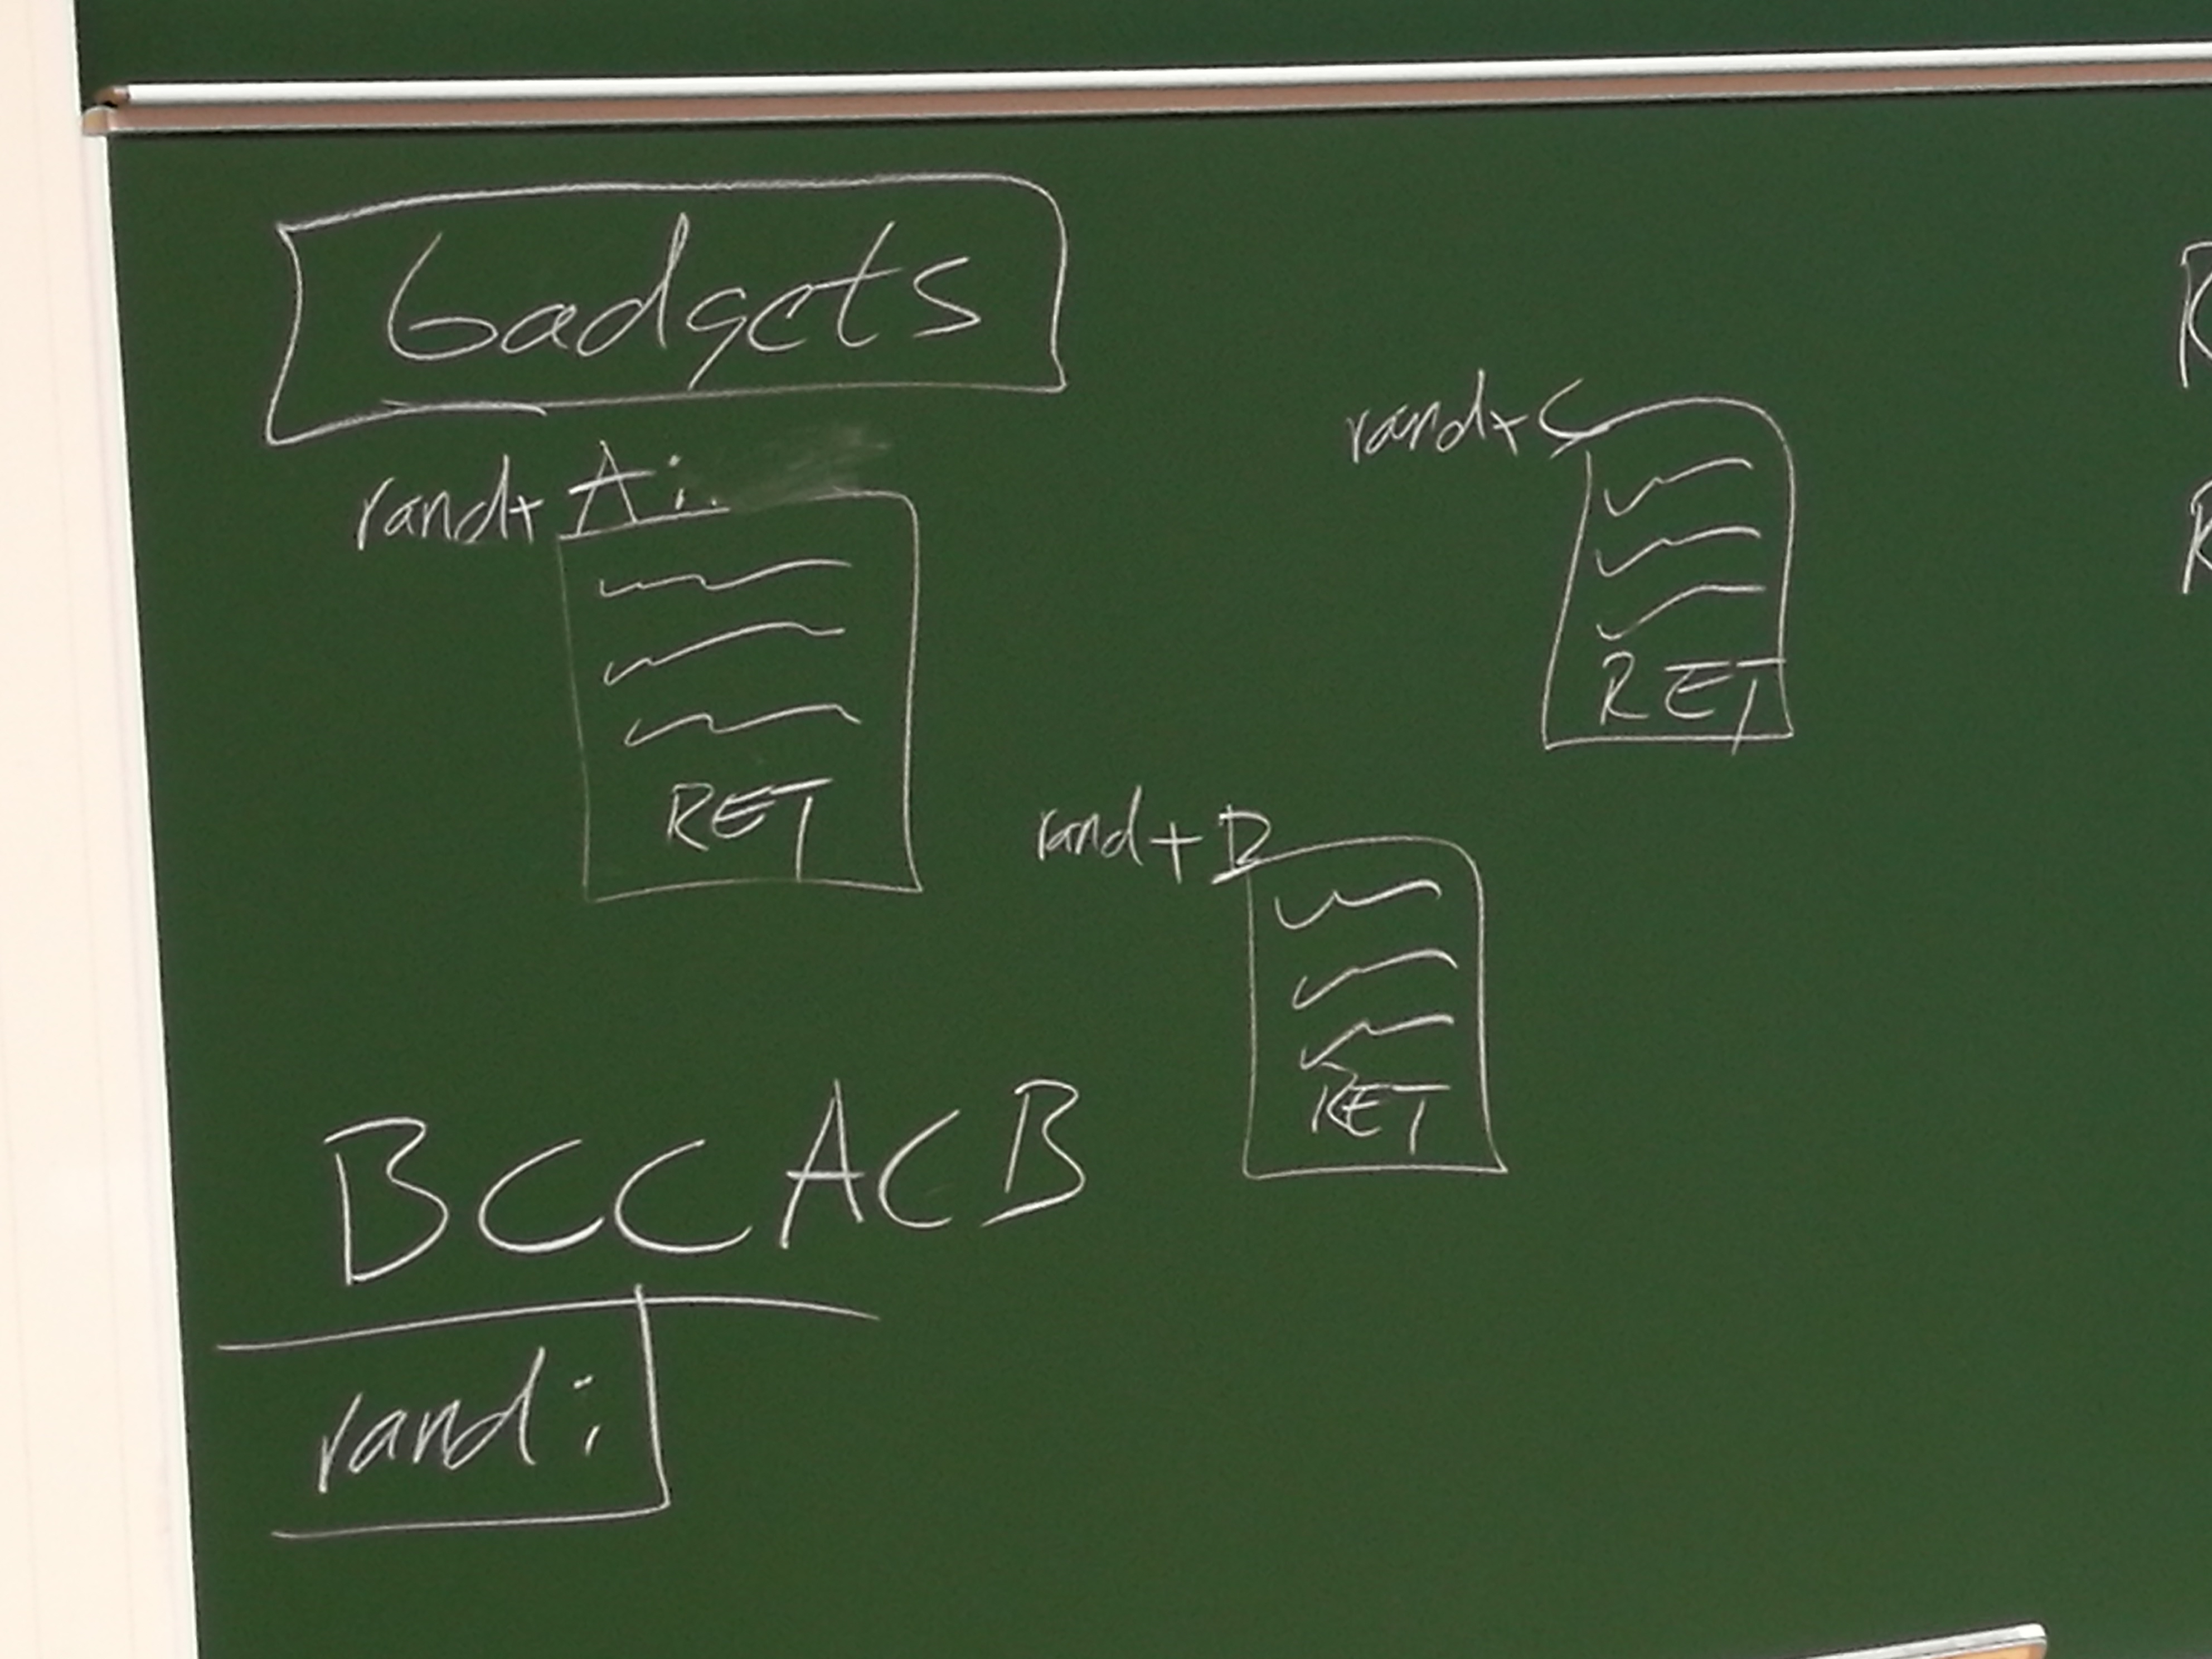 Gadgets
rand+ A:
RET
rand+ C
RET
rand + B
RET
BCCACB
rand:
R
R